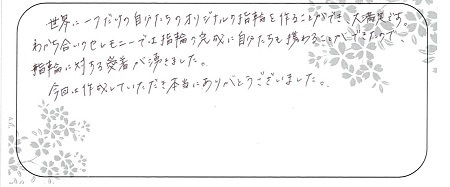 世界に一つだけの自分たちのオリジナルの指輪を作ることができ、大満足です。
わかち合いのセレモニーでは指輪の完成に自分たちも携わることができたので、
指輪に対する愛着が湧きました。
今回は作成していただき本当にありがとうございました。